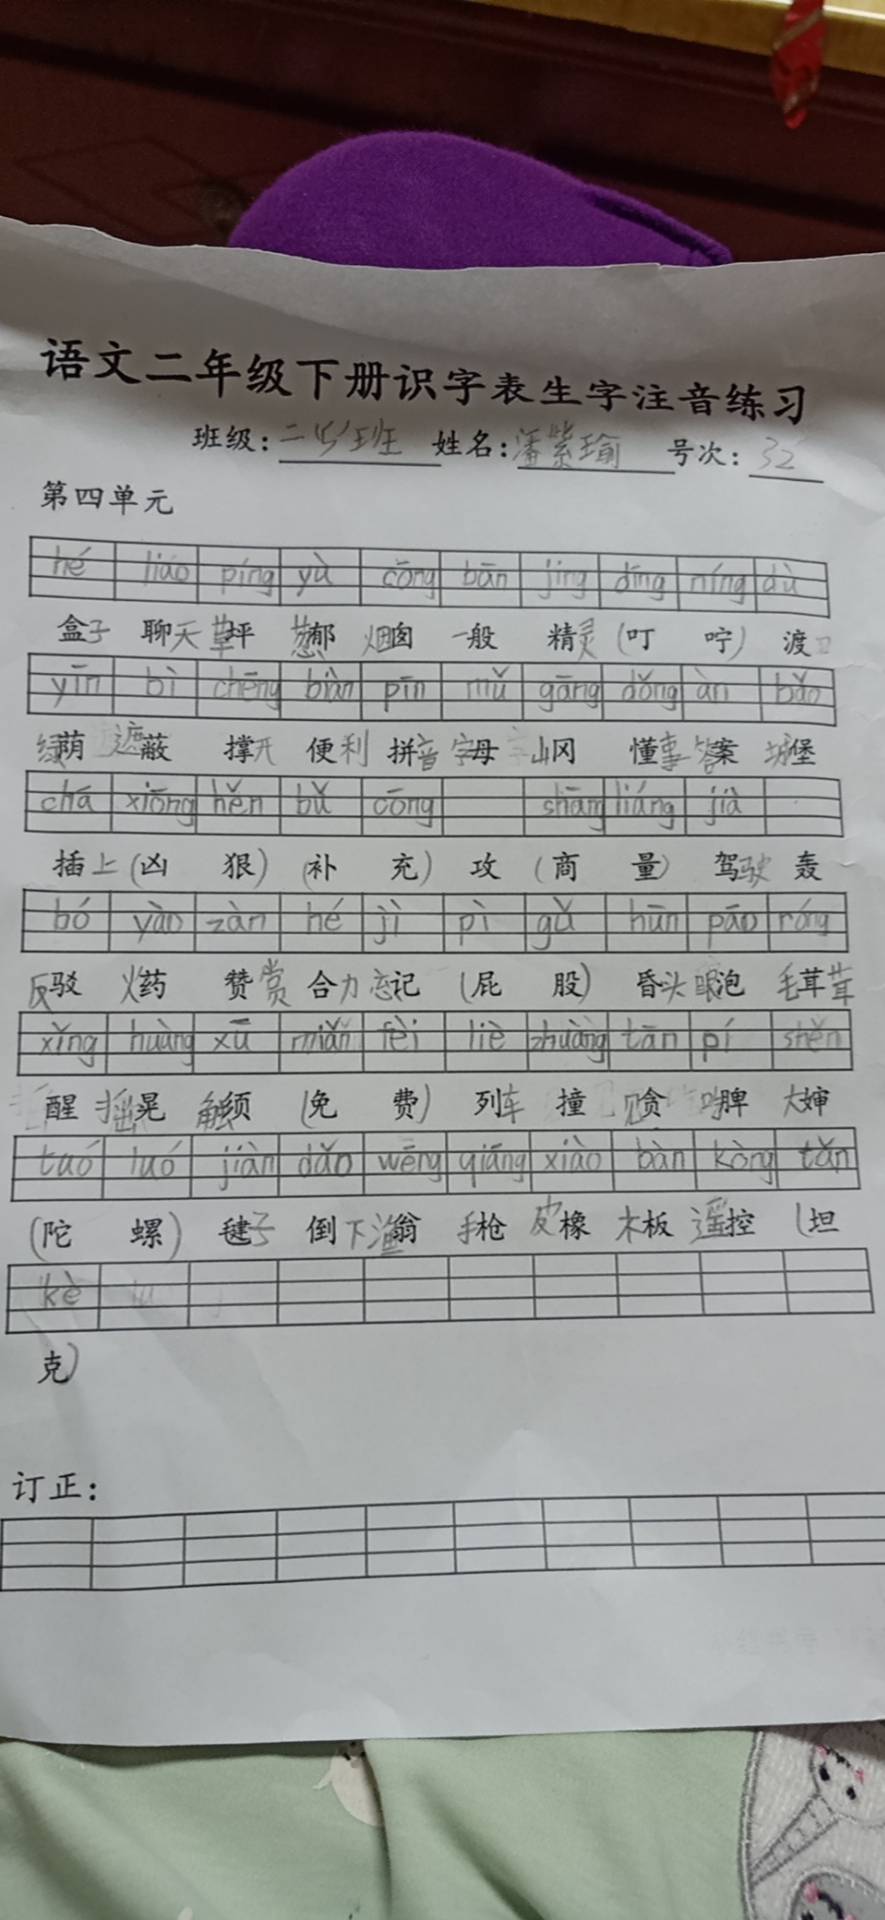 语文二年级下册识字表生字注音练习
班级：二(5)班 姓名：潘紫瑜 号次：32
第四单元
hé liáo píng yù cōng bān jīng dīng níng dù
盒子 聊天 草坪 葱郁 烟囱 一般 精灵 (叮 咛) 渡
yīn bì chēng biàn pīn mǔ gāng dǒng àn bǎo
绿荫 遮蔽 撑开 便利 拼音 字母 山冈 懂事 答案 城堡
chā xiōng hěn bǔ cōng shāng liáng jià
插上 (凶 狠) (补 充) 攻 (商 量) 驾驶 轰
bó yào zàn hé jì pì gǔ hūn pāo róng
反驳 火药 赞赏 合力 忘记 (屁 股) 昏头 眼泡 毛茸茸
xǐng huàng xū miǎn fèi liè zhuàng tān pí shěn
醒 摇晃 触须 (免 费) 列车 撞 贪 脾 大婶
tuó luó jiàn dǎo wēng qiāng xiào bàn kòng tǎn
(陀 螺) 毽子 倒下 渔翁 手枪 皮橡 木板 遥控 (坦
kè
克)
订正：